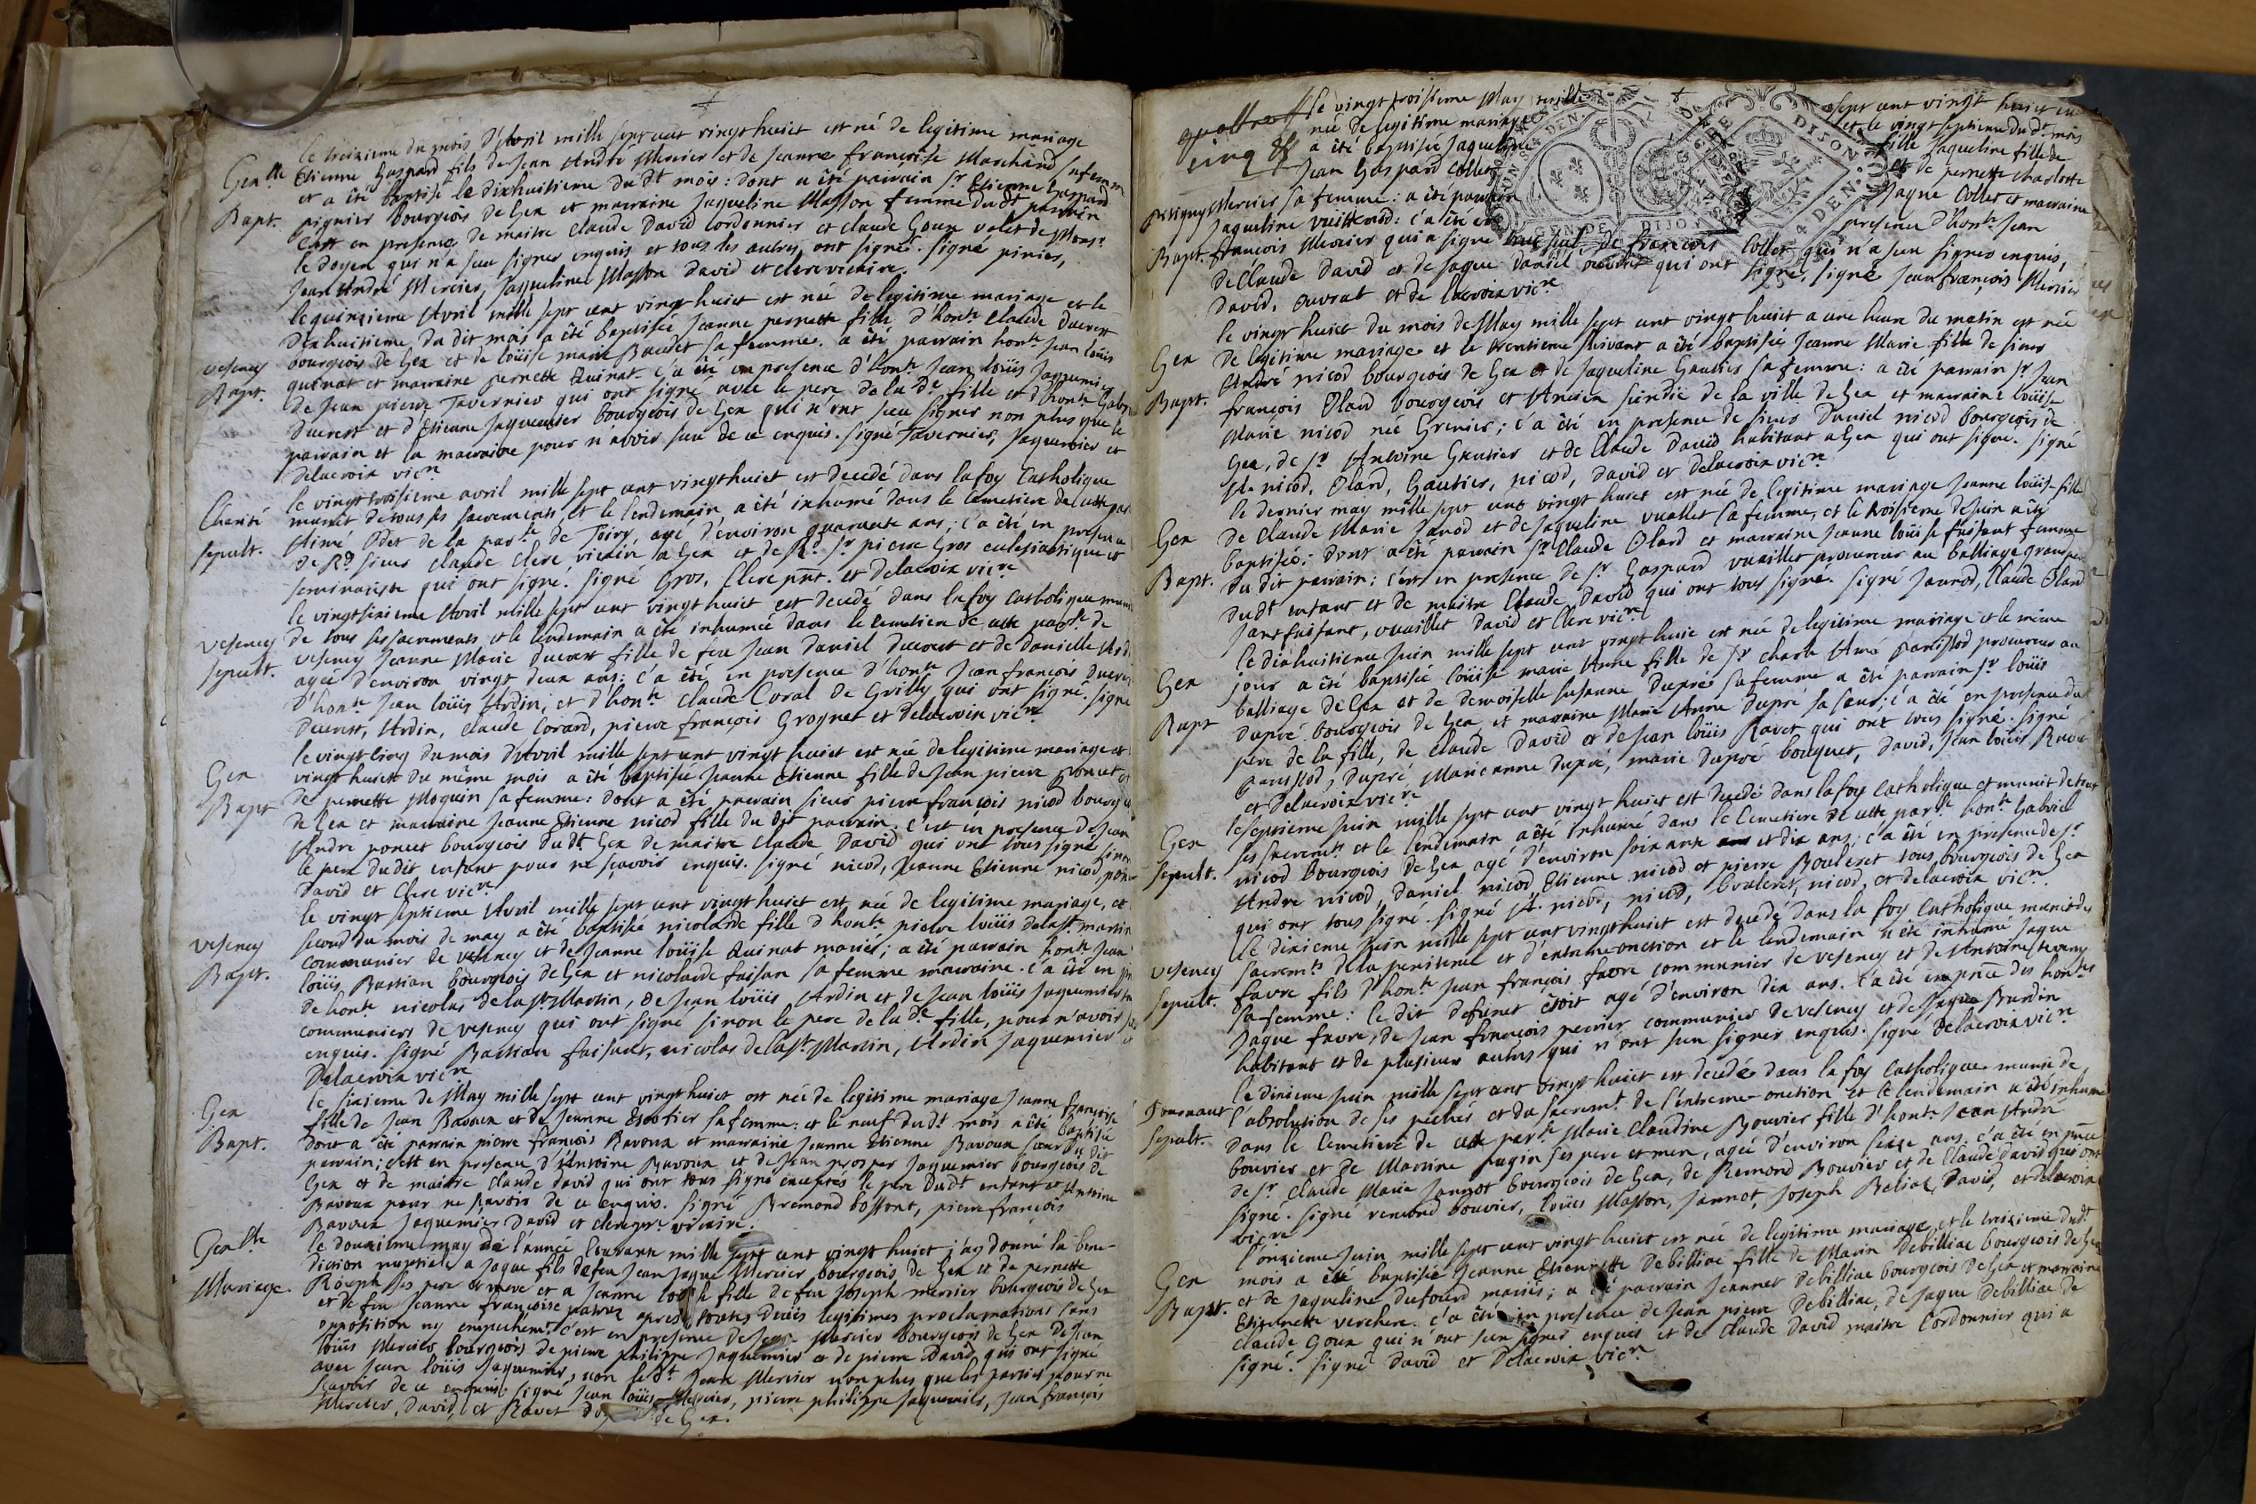 le treizieme du mois d'Avril mille sept cent vingt huict est né de legitime mariage
Gex
Bapt.
Etienne Gaspard fils de Jean André Mercier et de Jeanne françoise Marchand sa femme
et a été baptisé le dixhuitieme dudt mois: dont a été parrain Sr Etienne Gaspard
pignier bourgeois de Gex et marraine Jaqueline Masson femme dudt parrain
C'est en presence de maitre Claude David cordonnier et claude Goux valet de Monsr
le doyen qui n'a sceu signer enquis et tous les autres ont signés. signé pinier,
Jean André Mercier, Jaqueline Masson David et clerc vicaire.
le quinzieme Avril mille sept cent vingt huict est née de legitime mariage et le
dixhuitieme du dit mois a été baptisée Jeanne pernette fille d'honte Claude Ducrest
vesency
Bapt.
bourgeois de Gex et de loüise marie Baudet sa femme. a été parrain honte Jean loüis
quinat et marraine pernette Quinat. c'a été en presence d'honte Jean loüis Jaquemier
de Jean pierre Tavernier qui ont signé avec le pere de la de fille et d'honte Gabriel
Ducrest et d'Etienne Jaquemier bourgeois de Gex qui n'ont sceu signer non plus que le
parrain et la marraine pour n'avoir sceu de ce enquis. signé Tavernier, Jaquemier et
Delacroix vicre
le vingt troisieme avril mille sept cent vingthuict est decedé dans la foy Catholique
Charité
sepult.
munit de tous ses sacrements, et le lendemain a été inhumé dans le cemetiere de cette parse
Aimé Odet de la parse de Toiry, agé d'environ quarante ans; c'a été en presence
de Rd sieur claude Clerc, vicaire a Gex et de Rd Sr pierre Gros eclesiastique et
seminariste qui ont signé. signé Gros, Clerc pnt. et Delacroix vicre
le vingtsixieme Avril mille sept cent vingt huict est decedé dans la foy catholique munie
vesency
sepult.
de tous ses sacrements et le lendemain a été inhumée dans le cemetiere de cette parse de
vesency Jeanne Marie Ducrest fille de feu Jean Daniel Ducrest et de Danielle Ardin
agée d'environ vingt deux ans; c'a été en presence d'honte Jean françois Ducrest
d'honte Jean loüis Ardin, et d'honte claude Coral de Grilly qui ont signé. signé
Ducrest, Ardin, claude Corard, pierre françois Grognet et Delacroix vicre
le vingt cinq du mois d'Avril mille sept cent vingt huict est née de legitime mariage et
Gex
Bapt
vingt huict du même mois a été baptisée Jeanne Etienne fille de Jean pierre poncet et
de pernette Moquin sa femme: dont a été parrain sieur pierre françois nicod bourgeois
de Gex et marraine Jeanne Etienne nicod fille du dit parrain. c'est en presence de Jean
Andre poncet bourgeois dudt Gex de maitre claude David qui ont tous signé sinon
le pere dudit enfant pour ne sçavoir enquis. signé nicod, Jeanne Etienne nicod, poncet
David et Clerc vicre
le vingt septieme Avril mille sept cent vingt huict est née de legitime mariage, et
second du mois de may a été baptisée nicolarde fille d'honte pierre loüis delast. martin
vesency
Bapt.
communier de vesency et de Jeanne loüise Quinat mariés; a été parrain honte Jean
loüis Bastian bourgeois de Gex et nicolarde faisan sa femme marraine. c'a été en
de honte nicolas delast Martin, de Jean loüis Ardin et de Jean loüis Jaquemier
communiers de vesency qui ont signé sinon le pere de lade fille, pour n'avoir
enquis. signé Bastian faisant, nicolas delast. Martin, Ardin Jaquemier et
Delacroix vicre
le sixieme de May mille sept cent vingt huict est née de legitime mariage Jeanne françoise
Gex
Bapt.
fille de Jean Bavoux et de Jeanne Escoffier sa femme. et le neuf dudt mois a été baptisée
dont a été parrain pierre françois Bavoux et marraine Jeanne Etienne Bavoux soeur du dit
parrain; c'est en presence d'Antoine Bavoux et de Jean prosper Jaquemier bourgeois de
Gex et de maitre claude david qui ont tous signé exceptés le pere dudt enfant et Antoine
Bavoux pour ne sçavoir de ce enquis. signé Bremond bossont, pierre françois
Bavoux Jaquemier David et clerc pre vicaire.
Gex
Mariage.
le douzieme may de l'année courante mille sept cent vingt huict j'ay donné la bene-
diction nuptiale a Jaque fils defeu Jean Jaque Mercier bourgeois de Gex et de pernette
Roseph ses pere et mere et a Jeanne fille de feu Joseph mercier bourgeois de Gex
et de feu Jeanne françoise apres toutes deües legitimes proclamations sans
opposition ny empechemt. c'est en presence de Jean Mercier bourgeois de Gex de Jean
loüis Mercier bourgeois de pierre philippe Jaquemier et de pierre David qui ont signé
avec Jean loüis Jaquemier, non ledt Jean Mercier non plus que les parties pour ne
sçavoir de ce enquis. signé Jean loüis Mercier, pierre philippe Jaquemier, Jean françois
Mercier, David, et Ravet de Gex.
quatre
cinq
le vingt troisieme May mille sept cent vingt huict est
née de legitime mariage et le vingt septieme dudt mois
a été baptisée Jaqueline fille Jaqueline fille de
Jean Gaspard Collet et de pernette charlotte
Mercier sa femme: a été parrain Jaque Collet et marraine
Jaqueline vuillermod: c'a été en presence d'honte Jean
Bapt.
françois Mercier qui a signé de françois Collet qui n'a sceu signer enquis,
de Claude David et de Jaque Daniel ouvrat qui ont signé, signé Jean françois Mercier
David, ouvrat et de lacroix vicre
le vingt huict du mois de May mille sept cent vingt huict a une heure du matin est née
Gex
Bapt.
de legitime mariage et le trentieme suivant a été baptisée Jeanne Marie fille de sieur
André nicod bourgeois de Gex et de Jaqueline Gautier sa femme: a été parrain Sr Jean
françois Olard bourgeois et Ancien sindic de la ville de Gex et marraine loüise
Marie nicod née Grenier; c'a été en presence de sieur Daniel nicod bourgeois de
Gex, de Sr Antoine Gautier et de Claude David habitant a Gex qui ont signé. signé
A. nicod, Olard, Gautier, nicod, David et Delacroix vicre
le dernier may mille sept cent vingt huict est née de legitime mariage Jeanne loüise fille
Gex
Bapt.
de Claude Marie Janod et de Jaqueline vuallet sa femme, et le troisieme de Juin a été
baptisée; dont a été parrain Sr Claude Olard et marraine Jeanne loüise fuisant femme
du dit parrain; c'est en presence de Sr Gaspard vuaillet procureur au balliage grand pere
dudt enfant et de maitre Claude David qui ont tous signé. signé Jannod, Claude Olard
Jane fuisant, vuaillet David et Clerc vicre
le dixhuitieme Juin mille sept cent vingt huict est née de legitime mariage et le même
Gex
Bapt
jour a été baptisée loüise marie Anne fille de Sr charle Amé panissod procureur au
balliage de Gex et de demoiselle susanne Dupré sa femme a été parrain Sr loüis
Dupré bourgeois de Gex et marraine Marie Anne dupré sa soeur; c'a été en presence du
pere de la fille, de claude David et de Jean loüis Ravet qui ont tous signé. signé
panissod, Dupré Marieanne Dupré, marie dupré bouquet, David, Jean loüis Ravet
et Delacroix vicre
le septieme Juin mille sept cent vingt huict est decedé dans la foy catholique et munit de tous
Gex
sepult.
ses sacremts et le lendemain a été inhumé dans le cemetiere de cette parse honte Gabriel
nicod bourgeois de Gex agé d'environ soixante et dix ans; c'a été en presence de Sr
Andre nicod, Daniel nicod, Etienne nicod et pierre Bouleret tous bourgeois de Gex
qui ont tous signé. signé A. nicod, nicod, bouleret, nicod, et delacroix vicre
le dixieme Juin mille sept cent vingthuict est decedé dans la foy catholique munit des
vesency
sepult.
sacremts de la penitence et d'extreme onction et le lendemain a été inhumé Jaque
favre fils d'honte Jean françois favre communier de vesency et de Antoine
sa femme: le dit defunct étoit agé d'environ dix ans. c'a été en pnce des hontes
Jaque favre, de Jean françois perrier communier de vesency et de Jaque Burdin
habitant et de plusieur autres qui n'ont sceu signer enquis. signé Delacroix vicre
le dixieme Juin mille sept cent vingt huict est decedée dans la foy catholique munie de
Tournaux
sepult.
l'absolution de ses pechés et du sacremt de l'extreme-onction et le lendemain a été inhumée
dans le cemetiere de cette parse Marie Claudine Bouvier fille d'honte Jean André
bouvier et de Martine pugin ses pere et mere, agée d'environ seize ans. c'a été en pnce
de Sr claude Marie Jannot bourgeois de Gex, de Remond Bouvier et de Claude David qui ont
signé. signé remond bouvier, loüis Masson, Jannot, Joseph Beliat, David, et delacroix
vicre
l'onzieme Juin mille sept cent vingt huict est née de legitime mariage et le treizieme dudt
Gex
Bapt.
mois a été baptisée Jeanne Etiennette Debilliac fille de Marin Debilliac bourgeois de Gex
et de Jaqueline dufourd mariés; a été parrain Jeannet debilliac bourgeois de Gex et marraine
Etiennette verchere. c'a été en presence de Jean pierre Debilliac, de Jaque Debilliac de
claude Goux qui n'ont sceu signer enquis et de claude David maitre Cordonnier qui a
signé. signé David et Delacroix vicre